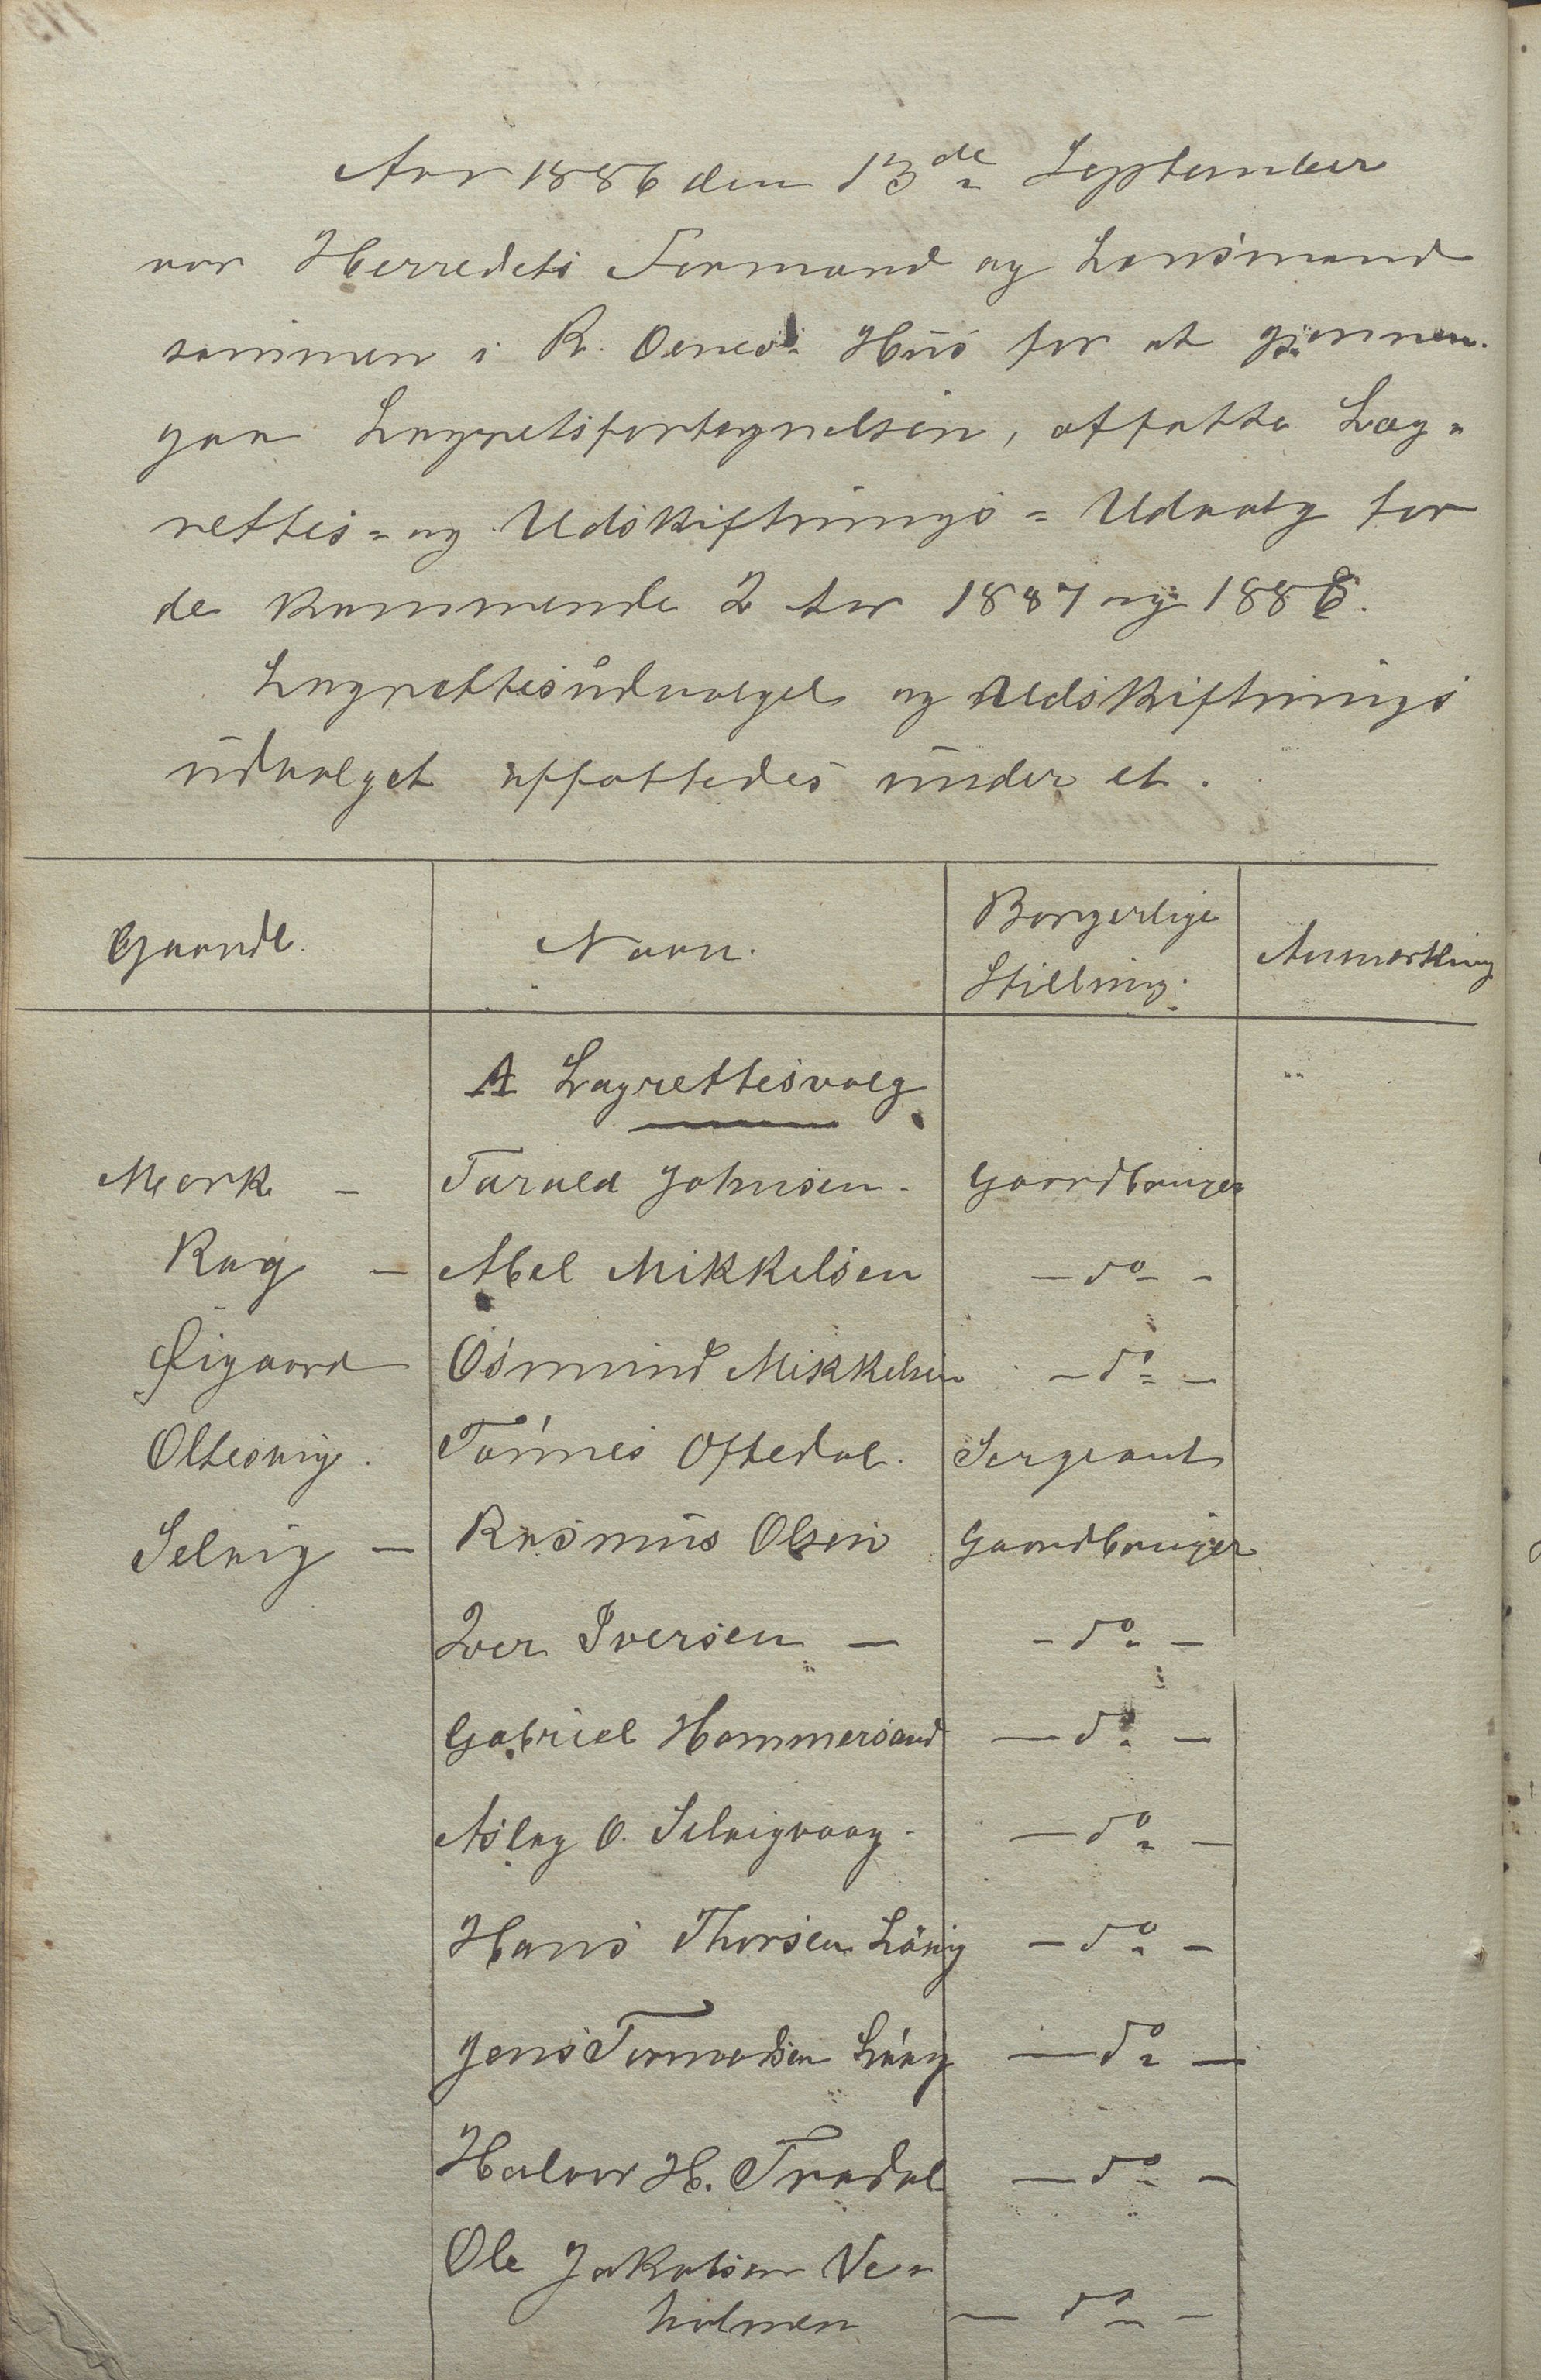 Aar 1886 den 13de September
var Herredets Formand og Lensmand
sammen i R. Oenes Hus for at gjennem-
gaa Lagretsfortegnelsen, affatte Lag-
rettes- og Udskiftnings- Udvalg for
de kommende 2 Aar 1887 og 1888.
Lagrettesudvalget og Udskiftnings
udvalget affattedes under et.
Gaarde. Navn. Borgerlige Stilling. Anmerkning
A Lagrettesvalg
Mærk - Tarald Johnsen. Gaardbruger
Rag - Abel Mikkelsen - do -
Øigaard Osmund Mikkelsen - do -
Oltesvig. Tønnes Oftedal. Sergeant
Selvig - Rasmus Olsen Gaardbruger
Iver Iversen - - do -
Gabriel Hammersand - do -
Aslag O. Selvigvaag - do -
Hans Thorsen Løvig - do -
Jens Tormodsen - do -
Halvor H. Tradal - do -
Ole Jakobsen Ve-
holmen - do -